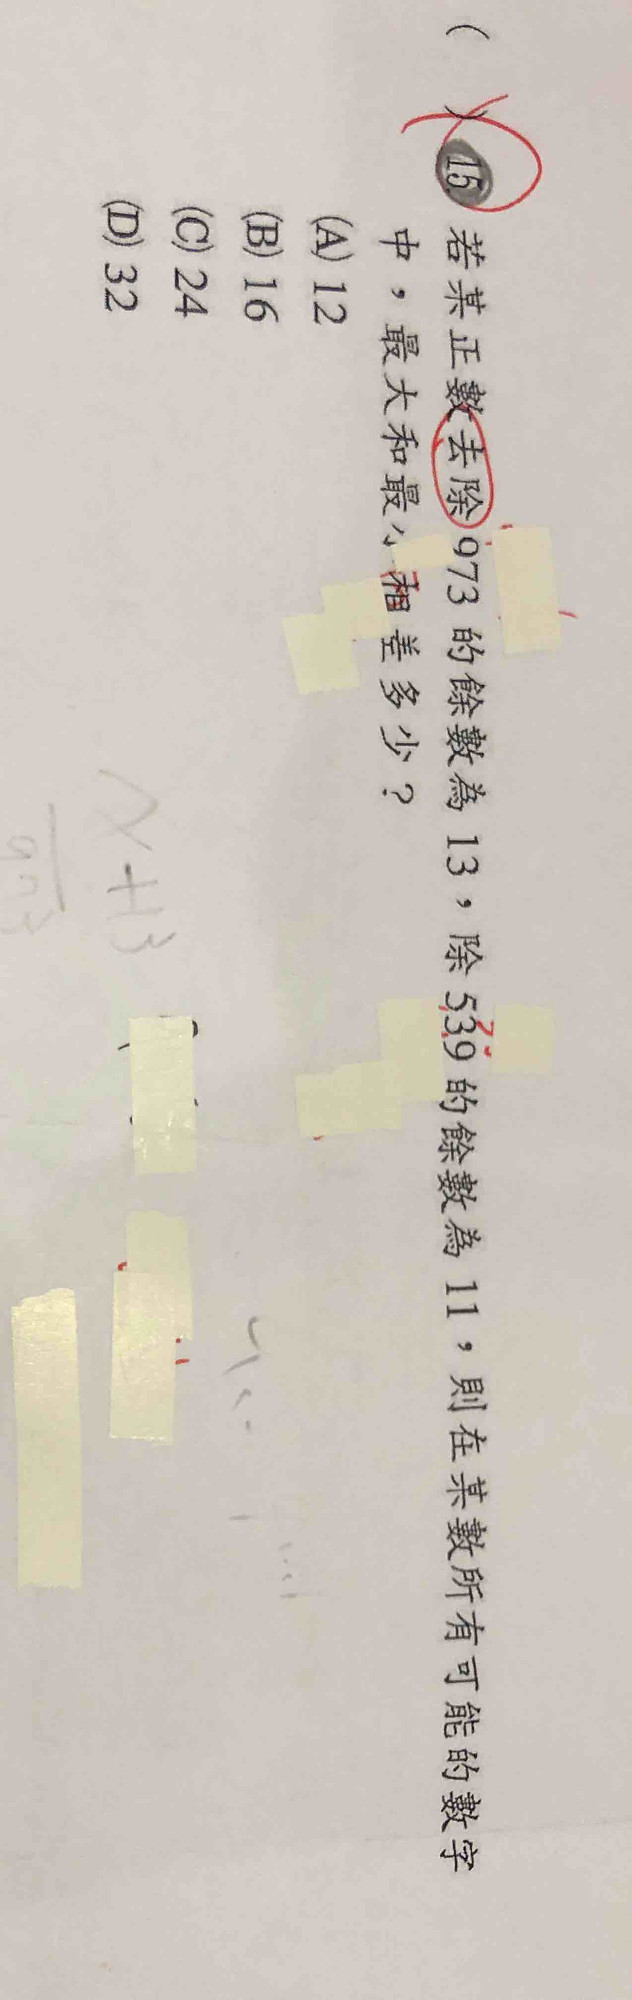 ( ) 15. 若某正數去除973的餘數為13，除539的餘數為11，則在某數所有可能的數字
中，最大和最小相差多少？
(A) 12
(B) 16
(C) 24
(D) 32
x+13
973